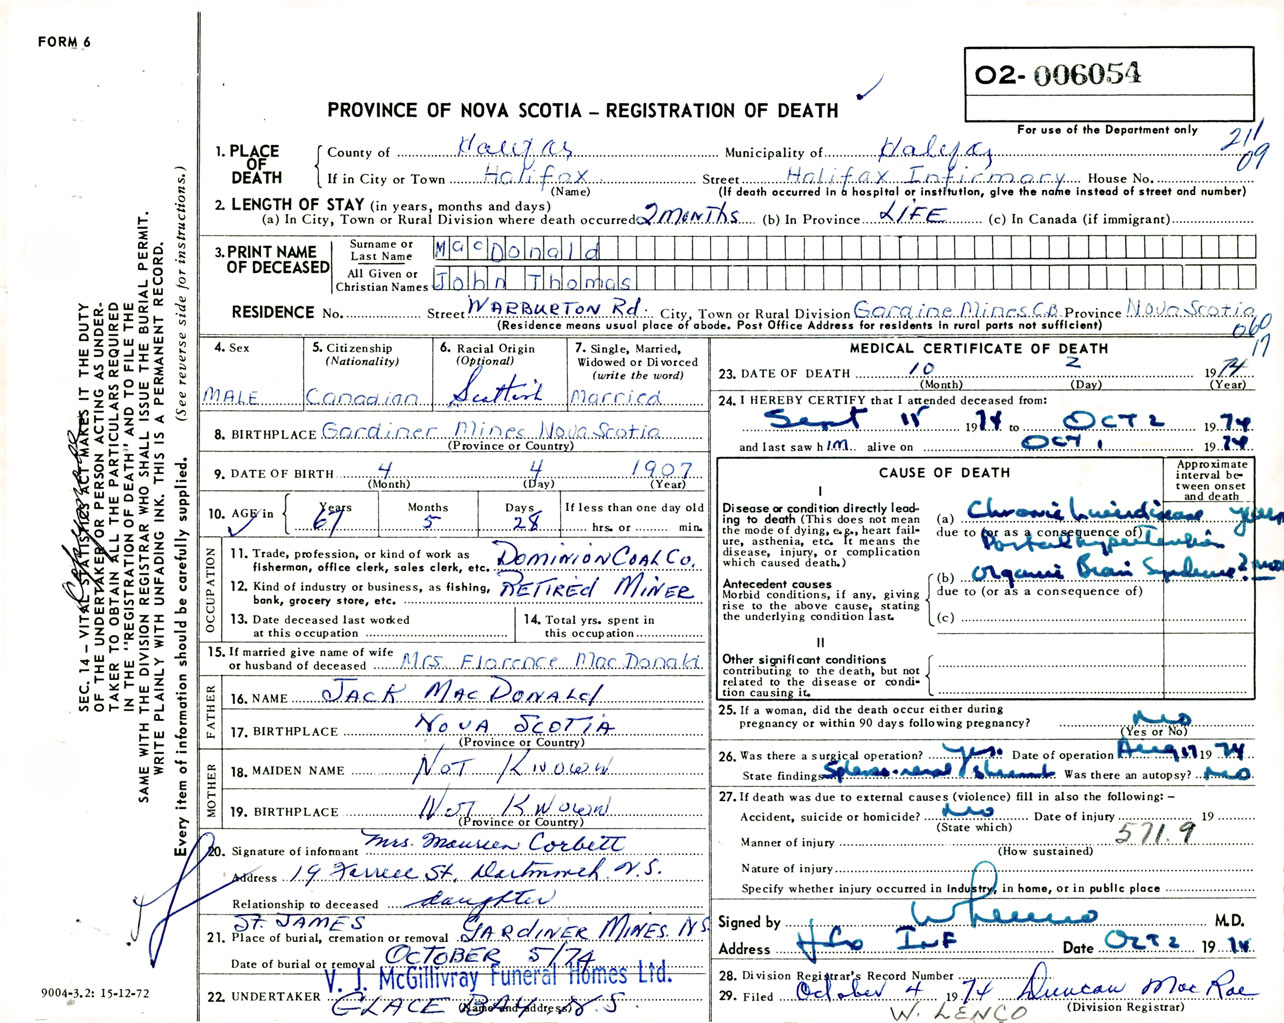 FORM 6
02-006054
For use of the Department only
211
09
PROVINCE OF NOVA SCOTIA – REGISTRATION OF DEATH
1. PLACE OF DEATH
County of Halifax Municipality of Halifax
If in City or Town Halifax Street Halifax Infirmary House No.
(Name) (If death occurred in a hospital or institution, give the name instead of street and number)
2. LENGTH OF STAY (in years, months and days)
(a) In City, Town or Rural Division where death occurred 2 MONTHS (b) In Province LIFE (c) In Canada (if immigrant)
3. PRINT NAME OF DECEASED
Surname or Last Name MacDonald
All Given or Christian Names John Thomas
RESIDENCE No. Street WARBURTON Rd. City, Town or Rural Division Gardine Mines C.B. Province Nova Scotia
(Residence means usual place of abode. Post Office Address for residents in rural parts not sufficient)
060
17
4. Sex
MALE
5. Citizenship (Nationality)
Canadian
6. Racial Origin (Optional)
Scottish
7. Single, Married, Widowed or Divorced (write the word)
Married
8. BIRTHPLACE Gardiner Mines Nova Scotia
(Province or Country)
9. DATE OF BIRTH 4 4 1907
(Month) (Day) (Year)
10. AGE in Years Months Days If less than one day old
67 5 28 hrs. or min.
OCCUPATION
11. Trade, profession, or kind of work as fisherman, office clerk, sales clerk, etc. DOMINION COAL CO.
12. Kind of industry or business, as fishing, bank, grocery store, etc. RETIRED MINER
13. Date deceased last worked at this occupation
14. Total yrs. spent in this occupation
15. If married give name of wife or husband of deceased Mrs Florence MacDonald
FATHER
16. NAME JACK MACDONALD
17. BIRTHPLACE NOVA SCOTIA
(Province or Country)
MOTHER
18. MAIDEN NAME NOT KNOWN
19. BIRTHPLACE NOT KNOWN
(Province or Country)
20. Signature of informant Mrs. Maureen Corbett
Address 19 Farrell St. Dartmouth N.S.
Relationship to deceased daughter
ST. JAMES
21. Place of burial, cremation or removal GARDINER MINES N.S.
Date of burial or removal OCTOBER 5/74
V. J. McGillivray Funeral Homes Ltd.
22. UNDERTAKER GLACE BAY N.S.
(Name and address)
MEDICAL CERTIFICATE OF DEATH
23. DATE OF DEATH 10 2 1974
(Month) (Day) (Year)
24. I HEREBY CERTIFY that I attended deceased from:
Sept 15 1974 to OCT 2 1974
and last saw h im alive on OCT 1 1974
CAUSE OF DEATH
Approximate interval between onset and death
I
Disease or condition directly leading to death (This does not mean the mode of dying, e.g., heart failure, asthenia, etc. It means the disease, injury, or complication which caused death.)
(a) Chronic liver disease years
due to (or as a consequence of)
Portal hypertension
Antecedent causes
Morbid conditions, if any, giving rise to the above cause, stating the underlying condition last.
(b) Organic Brain Syndrome ?
due to (or as a consequence of)
(c)
II
Other significant conditions
contributing to the death, but not related to the disease or condition causing it.
25. If a woman, did the death occur either during pregnancy or within 90 days following pregnancy? No
(Yes or No)
26. Was there a surgical operation? Yes. Date of operation Aug 17 1974
State findings Spleno-renal shunt Was there an autopsy? No
27. If death was due to external causes (violence) fill in also the following: –
Accident, suicide or homicide? No Date of injury 19
(State which)
571.9
Manner of injury
(How sustained)
Nature of injury
Specify whether injury occurred in industry, in home, or in public place
Signed by W Lenco M.D.
Address Hfx INF Date OCT 2 1974
28. Division Registrar's Record Number
29. Filed October 4 1974 Duncan MacRae
(Division Registrar)
W. LENCO
SEC. 14 – VITAL STATISTICS ACT MAKES IT THE DUTY
OF THE UNDERTAKER OR PERSON ACTING AS UNDER-
TAKER TO OBTAIN ALL THE PARTICULARS REQUIRED
IN THE "REGISTRATION OF DEATH" AND TO FILE THE
SAME WITH THE DIVISION REGISTRAR WHO SHALL ISSUE THE BURIAL PERMIT.
WRITE PLAINLY WITH UNFADING INK. THIS IS A PERMANENT RECORD.
Every item of information should be carefully supplied. (See reverse side for instructions.)
9004-3.2: 15-12-72